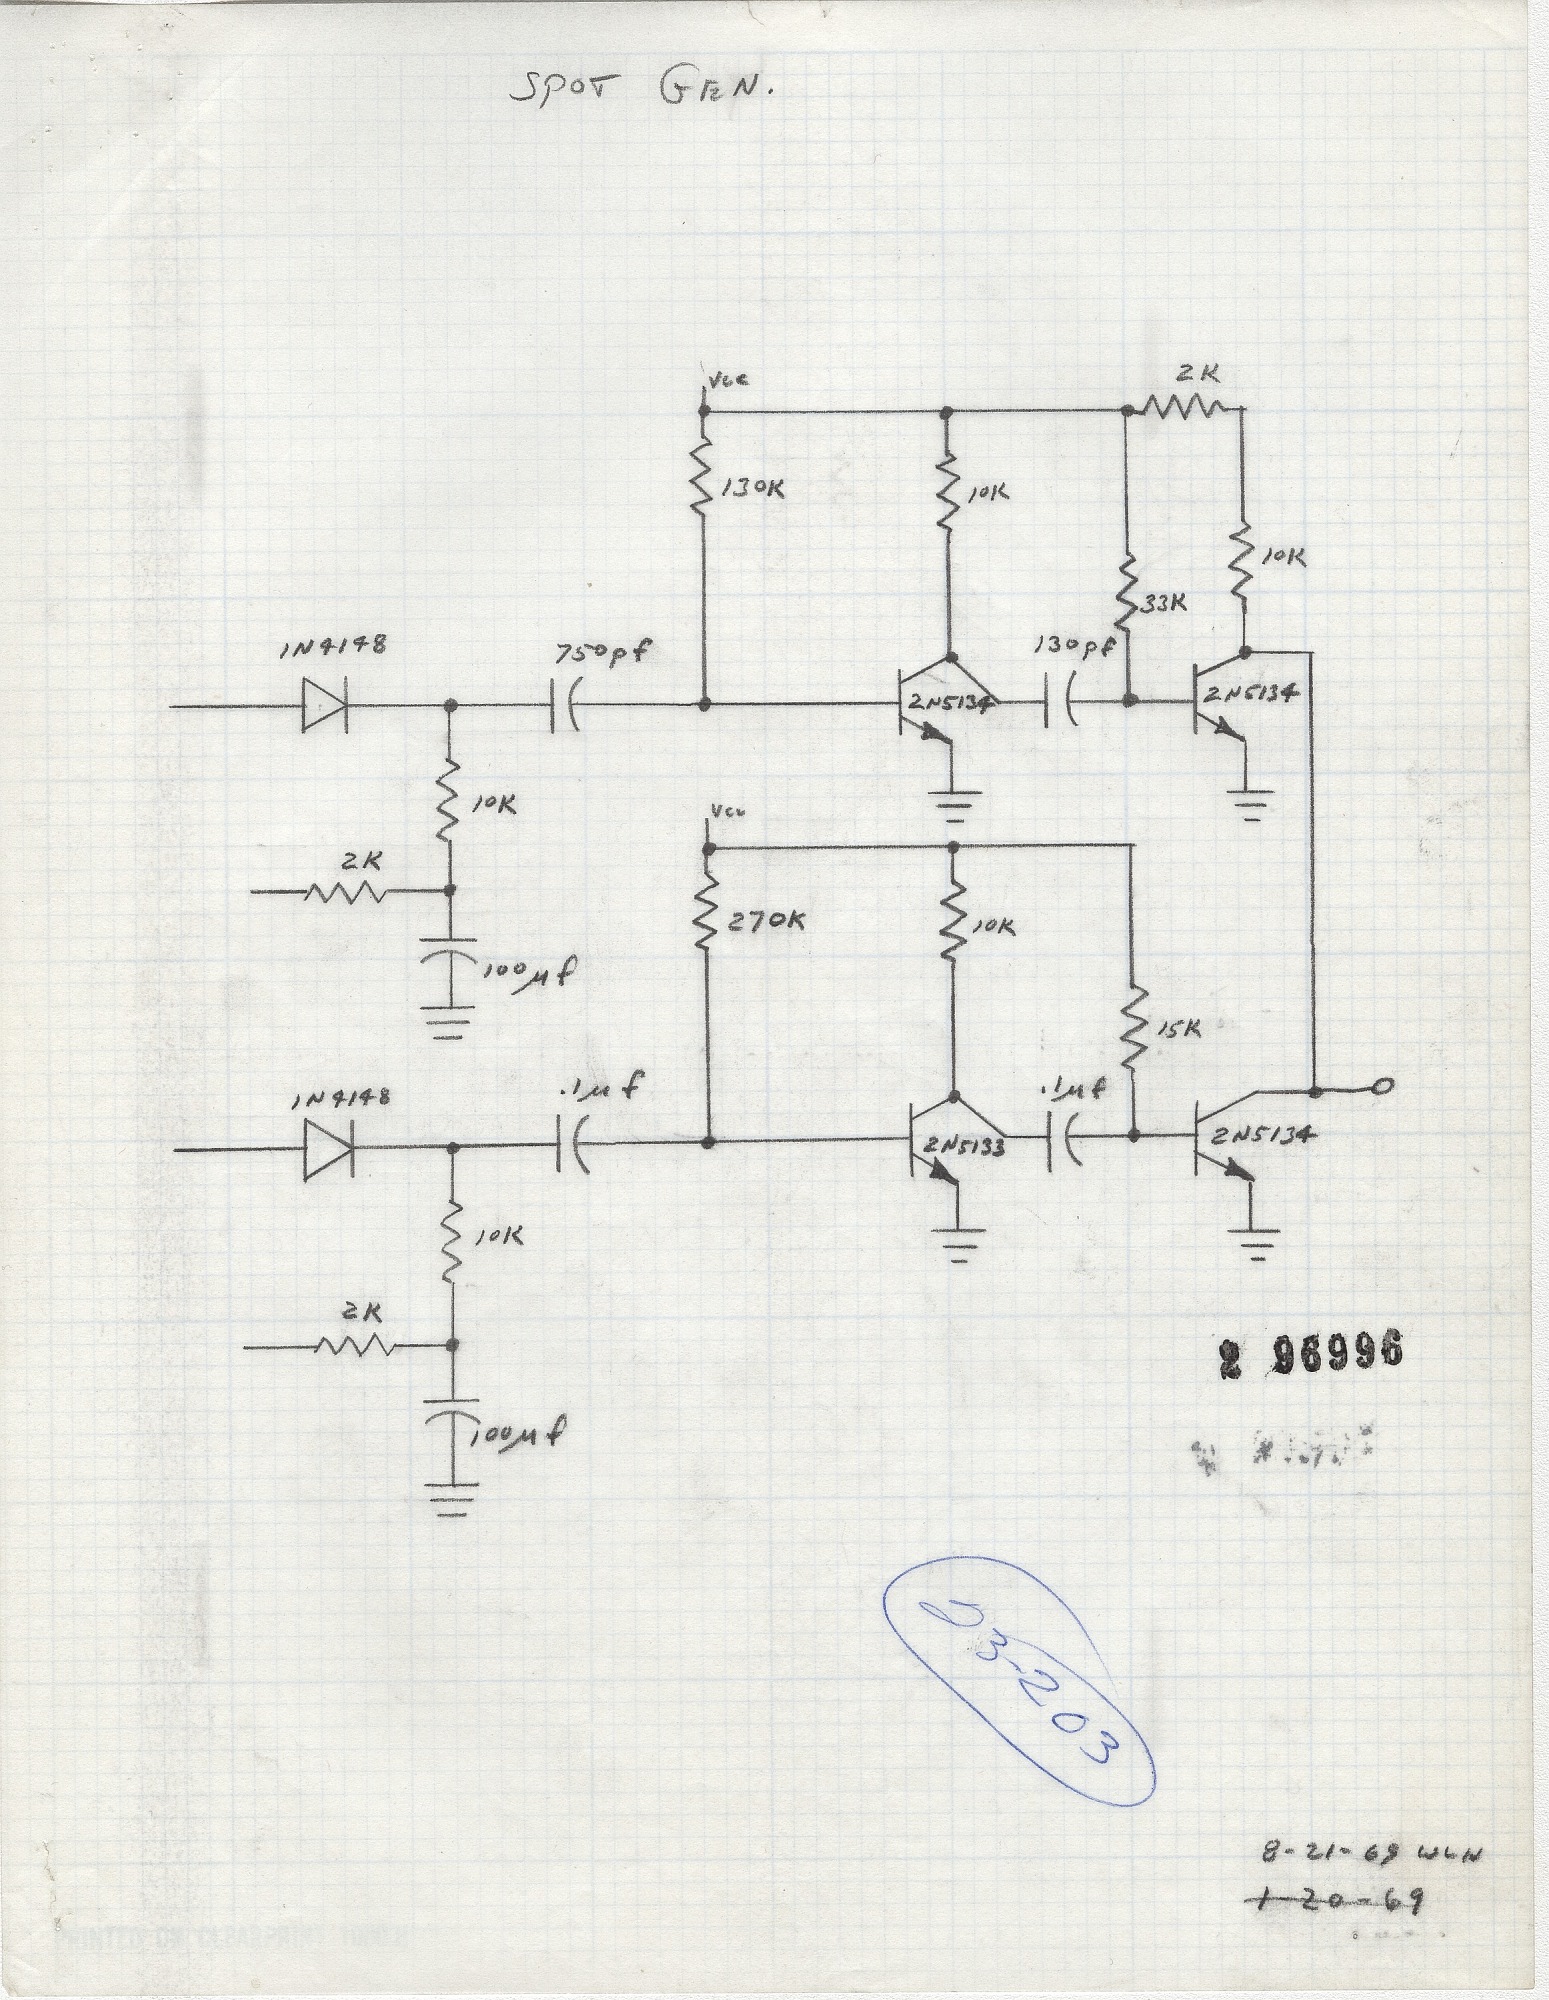 SPOT GEN.
Vcc
2K
130K
10K
10K
33K
1N4148
750pf
130pf
2N5134
2N5134
10K
Vcc
2K
270K
10K
100µf
15K
1N4148
.1µf
.1µf
2N5133
2N5134
10K
2K
2 96996
100µf
D3-203
8-21-69 WLN
1-20-69